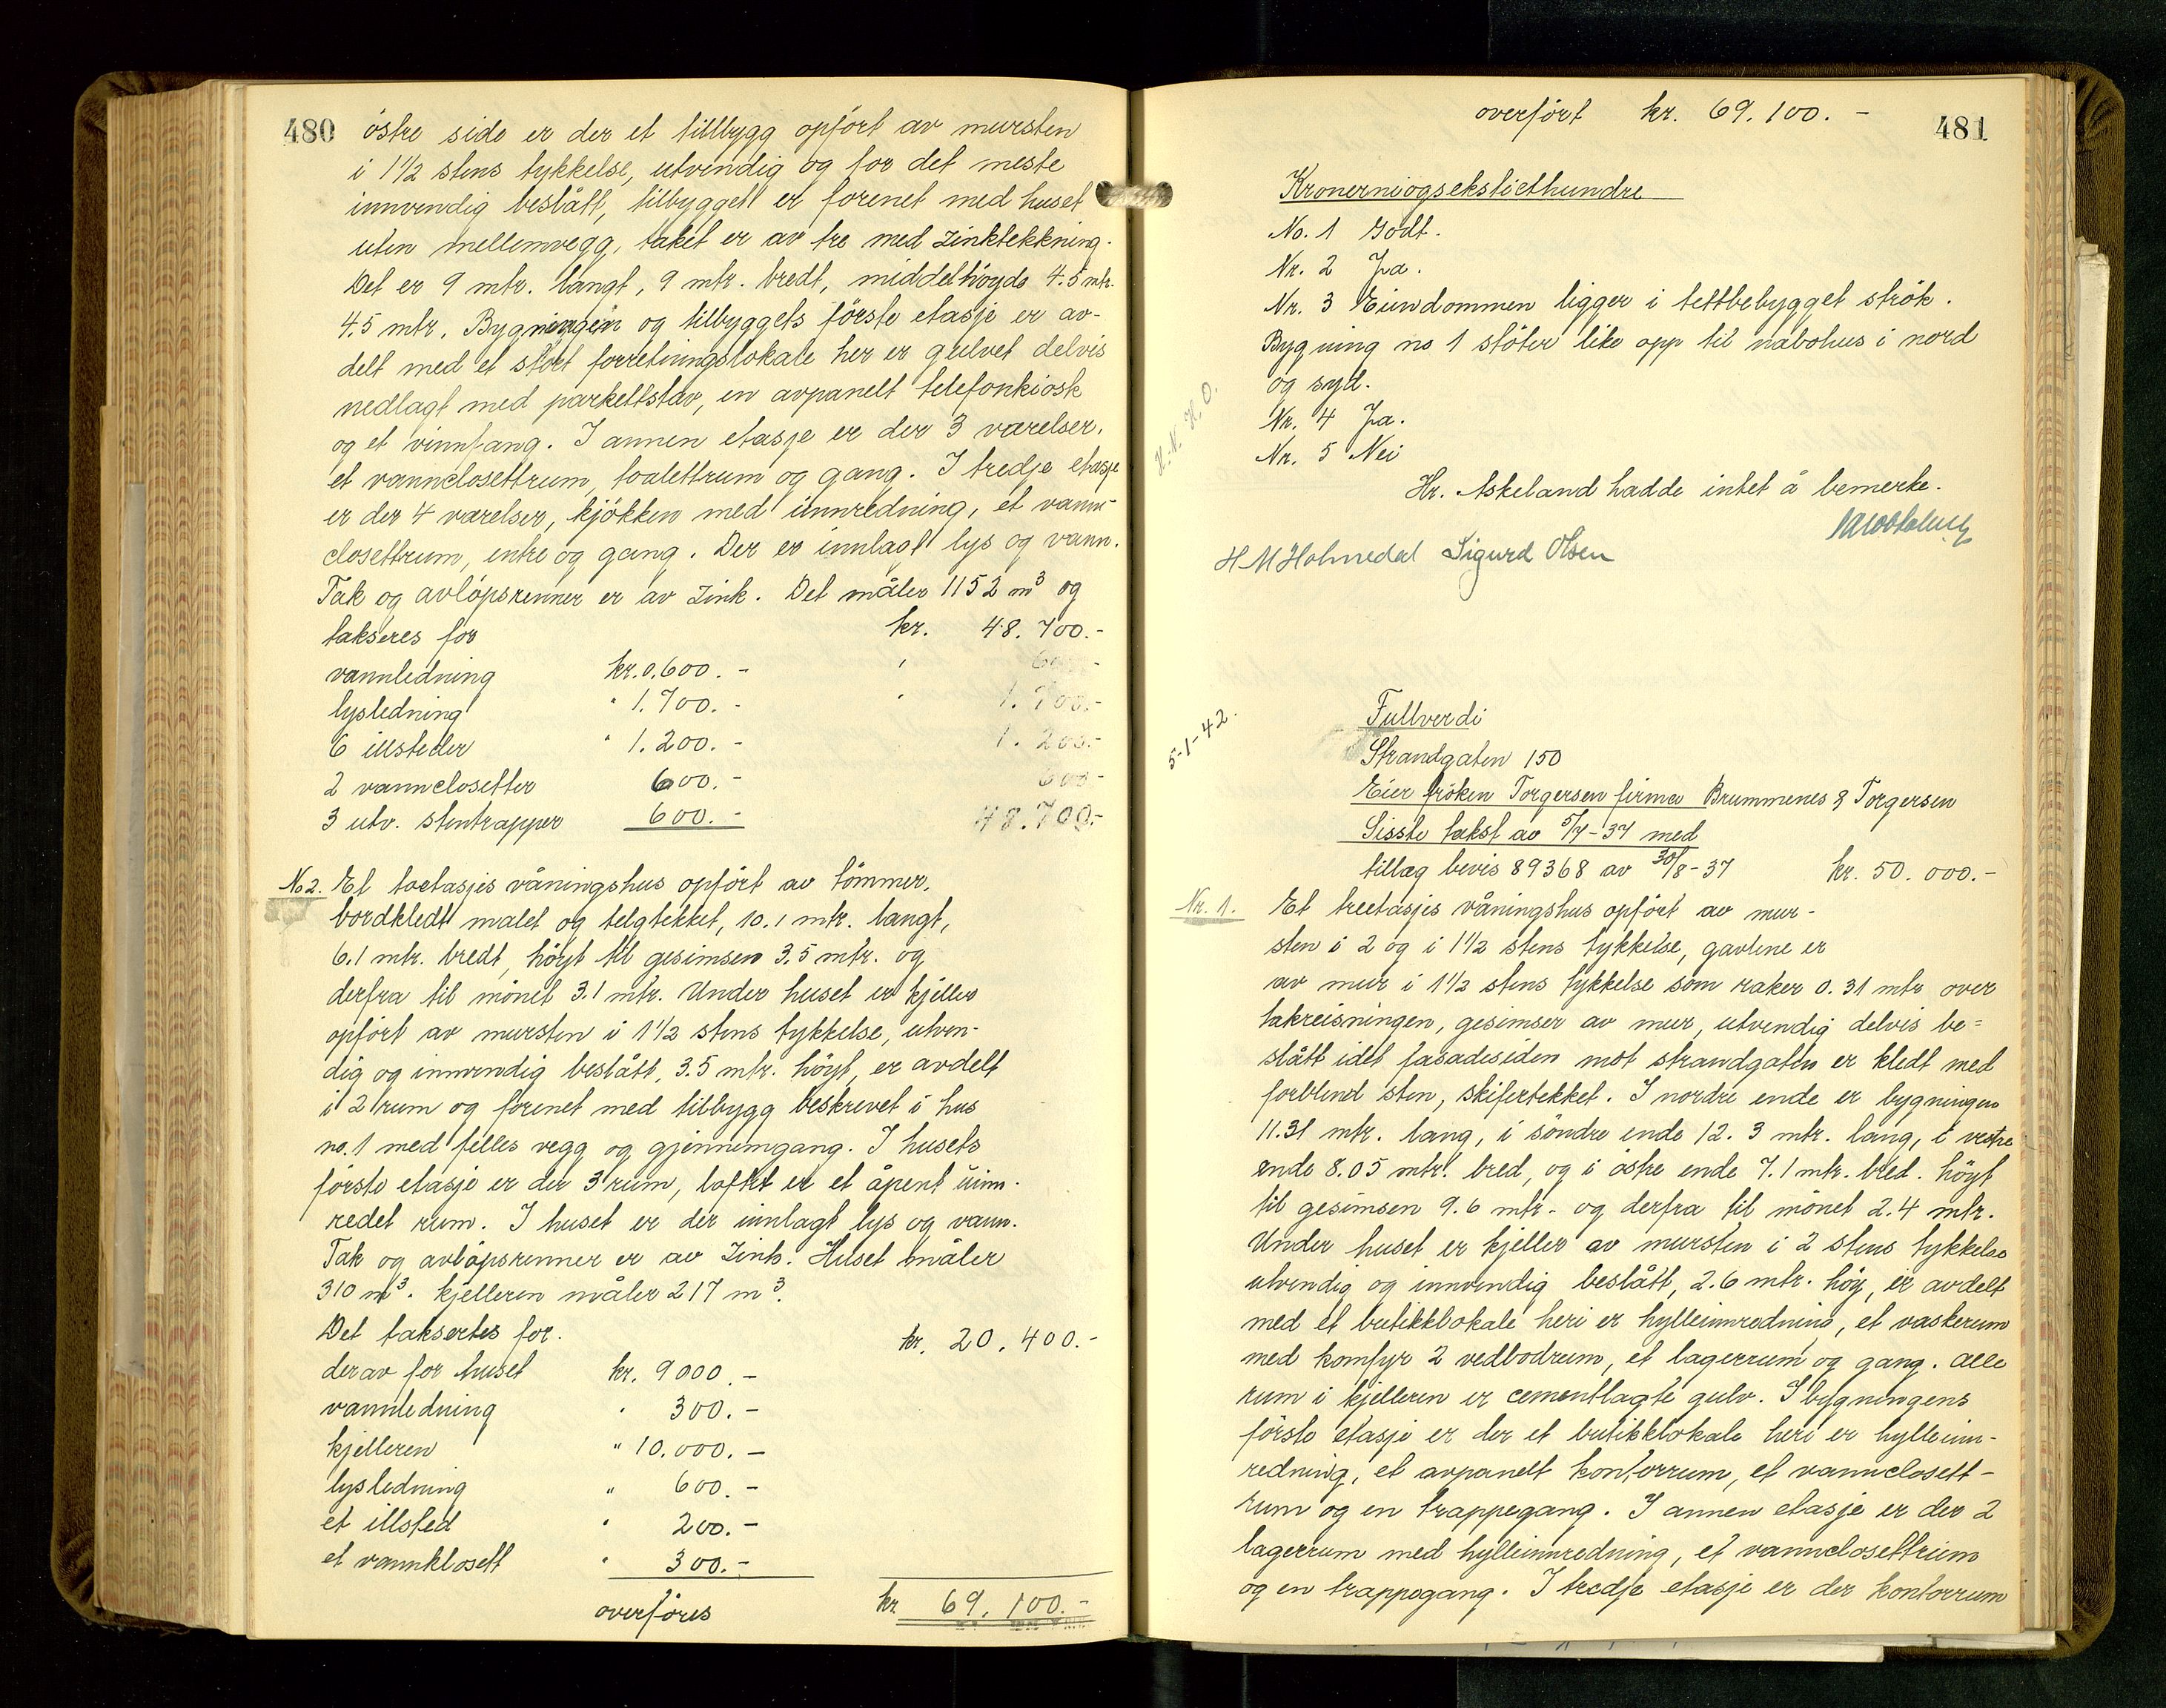 480
östre side er der et tillbygg opfört av mursten
i 1 1/2 stens tykkelse, utvendig og for det meste
innvendig beslått, tilbygget er forenet med huset
uten mellemvegg, taket er av tre med zinktekkning.
Det er 9 mtr. langt, 9 mtr. bredt, middelhöyde 4.5 mtr.
4.5 mtr. Bygningen og tilbyggets förste etasje er av-
delt med et stort forretningslokale her er gulvet delvis
nedlagt med parkettstav, en avpanelt telefonkiosk
og et vinnfang. I annen etasje er der 3 værelser,
et vannclosettrum, toalettrum og gang. I tredje etasje
er der 4 værelser, kjökken med innredning, et vann-
closettrum, entre og gang. Der er innlagt lys og vann.
Tak og avlöpsrenner er av Zink. Det måler 1152 m³ og
takseres for kr. 48.700.-
vannledning kr. 0.600.- " 600.-
lysledning " 1.700.- " 1.700.-
6 illsteder " 1.200.- 1.200.-
2 vannclosetter 600.- 600.-
3 utv. stentrapper 600.- 48.700.-
No 2. Et toetasjes våningshus opfört av tömmer,
bordkledt malet og telgtekket, 10.1 mtr. langt,
6.1 mtr. bredt, höyt til gesimsen 3.5 mtr. og
derfra til mönet 3.1 mtr. Under huset er kjeller
opfört av mursten i 1 1/2 stens tykkelse, utven-
dig og innvendig beslått, 3.5 mtr. höyt, er avdelt
i 2 rum og forenet med tilbygg beskrevet i hus
no. 1 med felles vegg og gjennemgang. I husets
förste etasje er der 3 rum, loftet er et åpent uinn-
redet rum. I huset er der innlagt lys og vann.
Tak og avlöpsrenner er av Zink. Huset måler
310 m³. kjelleren måler 217 m³.
Det taksertes for. kr. 20.400.-
derav for huset kr. 9000.-
vannledning " 300.-
kjelleren " 10.000.-
lysledning " 600.-
et illsted " 200.-
et vannklosett " 300.-
overföres kr. 69.100.-
overfört kr. 69.100.-
481
Kronerniogsekstiethundre
No. 1 Godt.
Nr. 2 Ja.
Nr. 3 Eiendommen ligger i tettbebygget strök.
Bygning no 1 stöter like opp til nabohus i nord
og syd.
Nr. 4 Ja.
Nr. 5 Nei
Hr. Askeland hadde intet å bemerke.
H M Holmedal Sigurd Olsen
5-1-42.
Fullverdi
Strandgaten 150
Eier fröken Torgersen firma Brummenes & Torgersen
Sisste takst av 5/7-37 med
tillæg bevis 89368 av 30/8-37 kr. 50.000.-
Nr. 1. Et treetasjes våningshus opfört av mur-
sten i 2 og i 1 1/2 stens tykkelse, gavlene er
av mur i 1 1/2 stens tykkelse som raker 0.31 mtr over
takreisningen, gesimser av mur, utvendig delvis be=
slått idet fasadesiden mot strandgaten er kledt med
forblend sten, skifertekket. I nordre ende er bygningen
11.31 mtr. lang, i söndre ende 12.3 mtr. lang, i vestre
ende 8.05 mtr. bred, og i östre ende 7.1 mtr. bred. höyt
til gesimsen 9.6 mtr. og derfra til mönet 2.4 mtr.
Under huset er kjeller av mursten i 2 stens tykkelse
utvendig og innvendig beslått, 2.6 mtr. höy, er avdelt
med et butikklokale heri er hylleinnredning, et vaskerum
med komfyr 2 vedbodrum, et lagerrum og gang. alle
rum i kjelleren er cementlagte gulv. I bygningens
förste etasje er der et butikklokale heri er hylleinn-
redning, et avpanelt kontorrum, et vannclosett-
rum og en trappegang. I annen etasje er der 2
lagerrum med hylleinnredning, et vannclosettrum
og en trappegang. I tredje etasje er der kontorrum